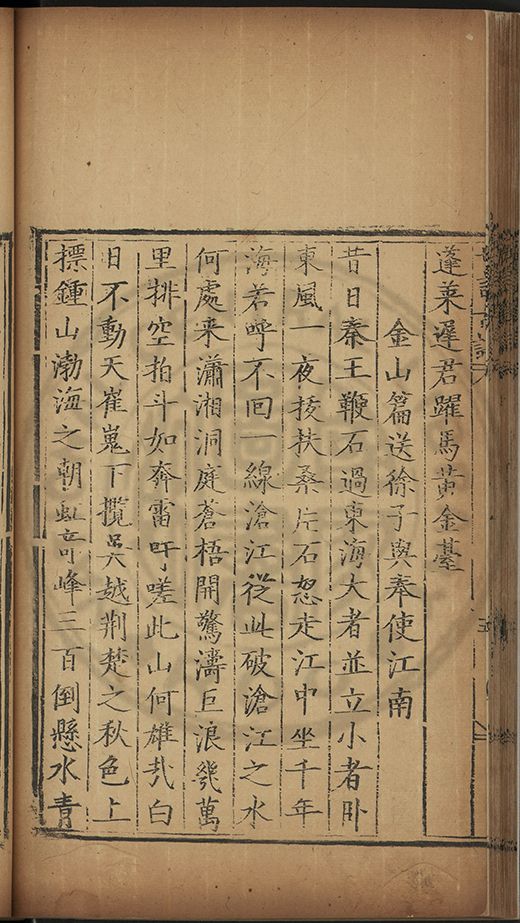 蓬萊遲君躍馬黃金臺
金山篇送徐子與奉使江南
昔日秦王鞭石過東海大者並立小者卧
東風一夜拔扶桑片石怒走江中坐千年
海若呼不回一線滄江從此破滄江之水
何處来瀟湘洞庭蒼梧開驚濤巨浪幾萬
里排空拍斗如奔雷吁嗟此山何雄㢤白
日不動天崔嵬下攬吳越荆楚之秋色上
標鍾山渤海之朝虹竒峰三百倒懸水青